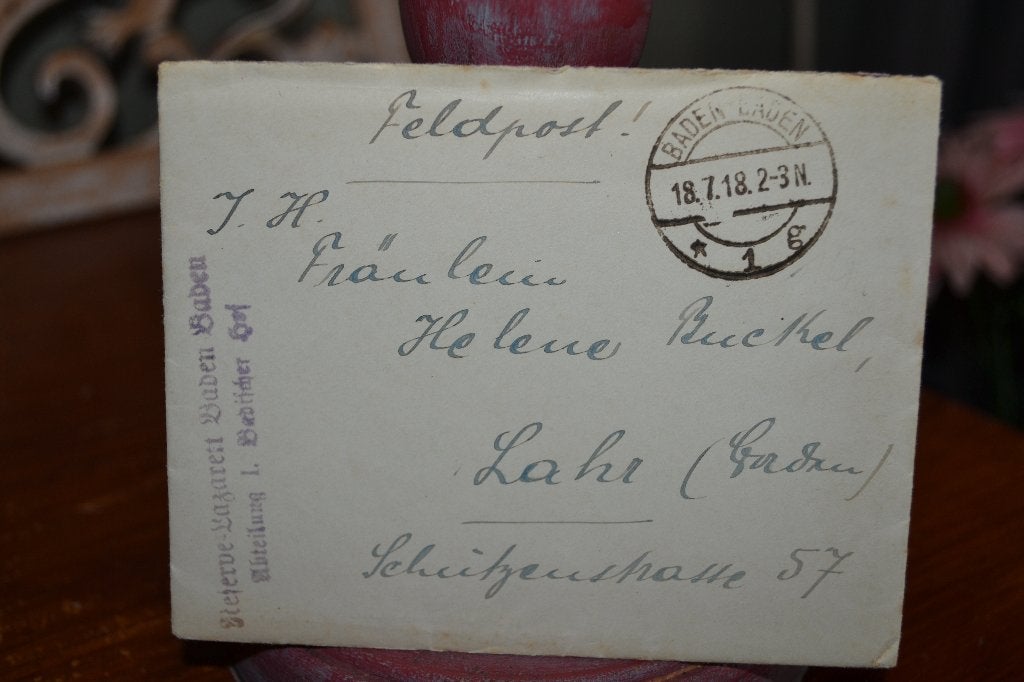 Feldpost!
BADEN-BADEN
18.7.18. 2-3 N.
* 1 g
I. H.
Fräulein
Helene Buckel,
Lahr (Baden)
Schützenstrasse 57
Reserve-Lazarett Baden Baden
Abteilung 1. Badischer Hof